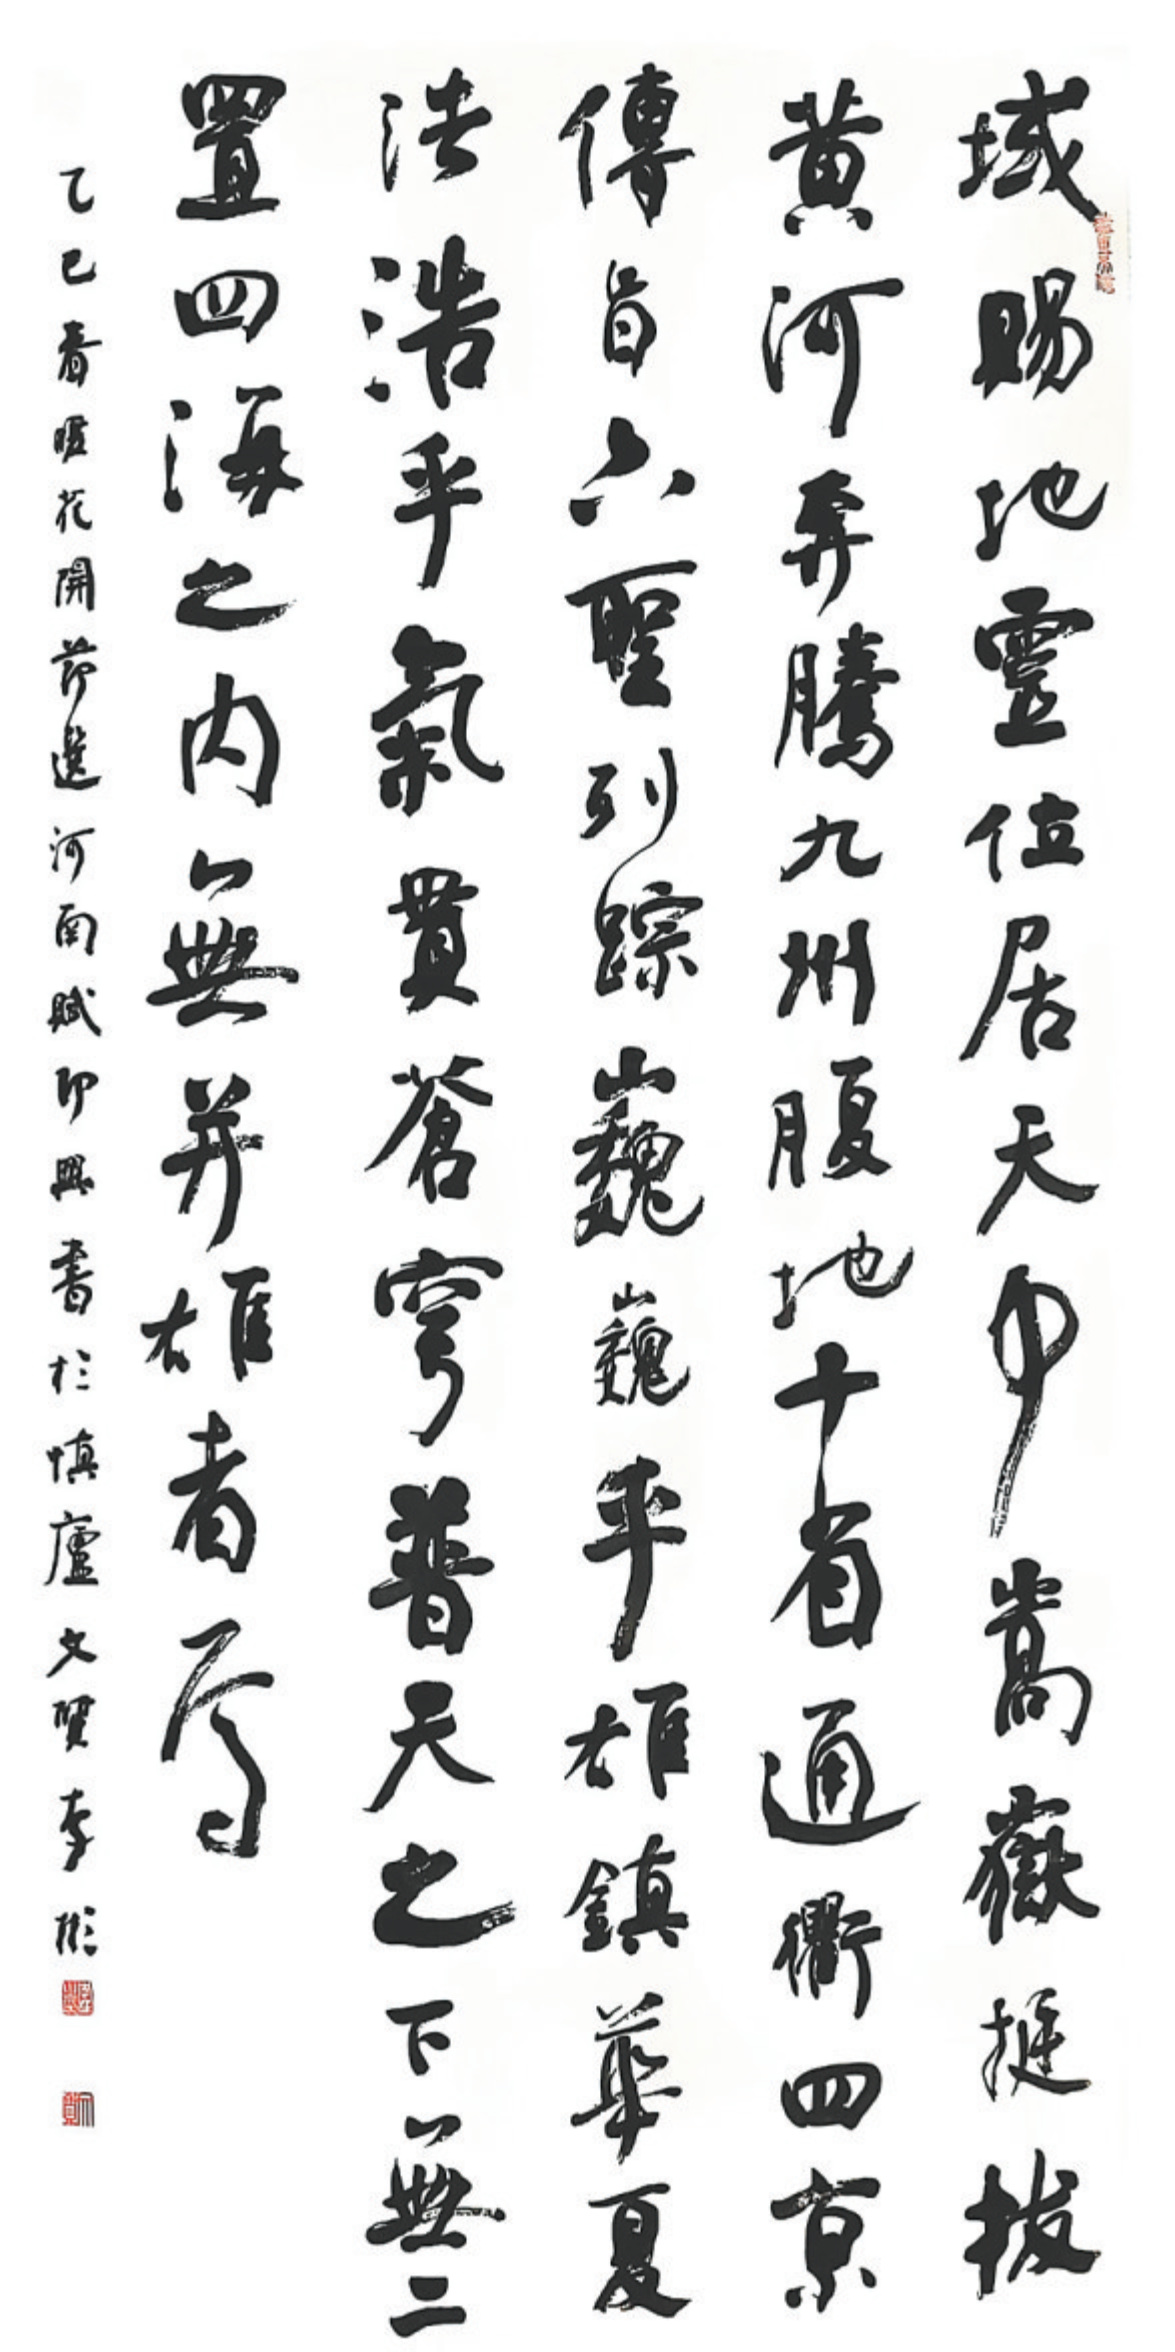 域賜地靈位居天中嵩嶽挺拔
黄河奔騰九州腹地十省通衢四京
傳旨六聖列踪巍巍乎雄鎮華夏
浩浩乎氣貫蒼穹普天之下無二
置四海之内無并雄者焉
乙巳春暖花開節選河南賦即興書於慎廬文賢李彬